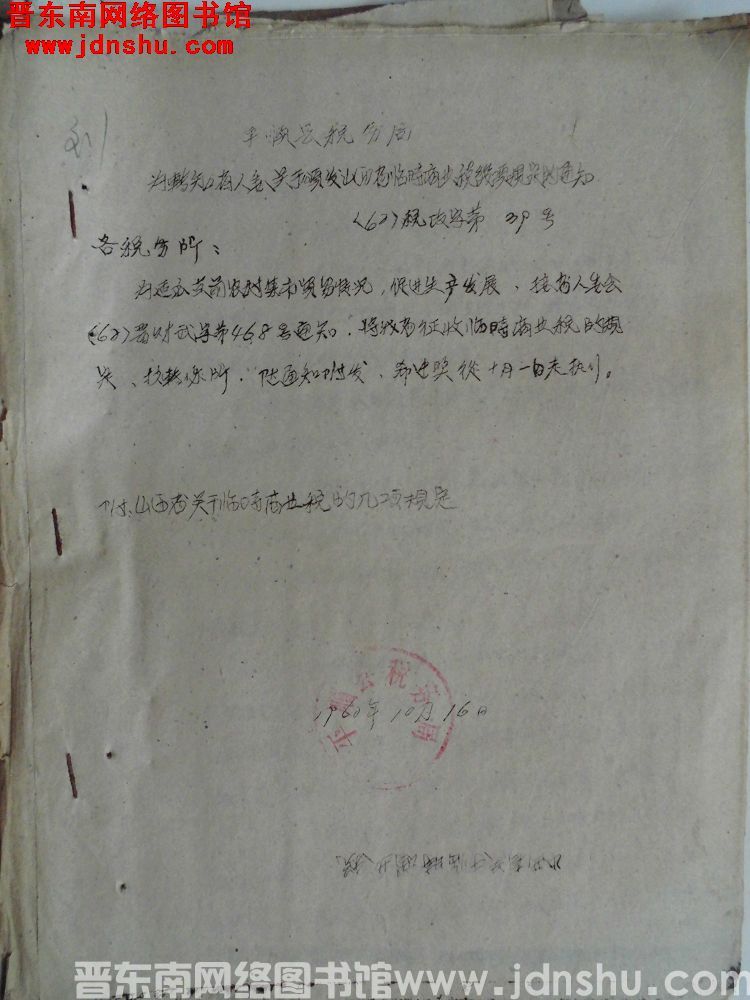 晋东南网络图书馆
www.jdnshu.com
平顺县税务局
为转知省人委关于颁发山西省临時商业税几项規定的通知
(62)税政字第 39 号
各税务所：
为适应当前农村集市贸易情况，促进生产发展、接省人委会
(62)晋财武字第468号通知，将改为征收临時商业税的規
定、抄转你所，随通知附发，希遵照從十月一日起执行。
附：山西省关于临時商业税的几项規定
平顺县税务局
1962年10月16日
晋东南网络图书馆www.jdnshu.com